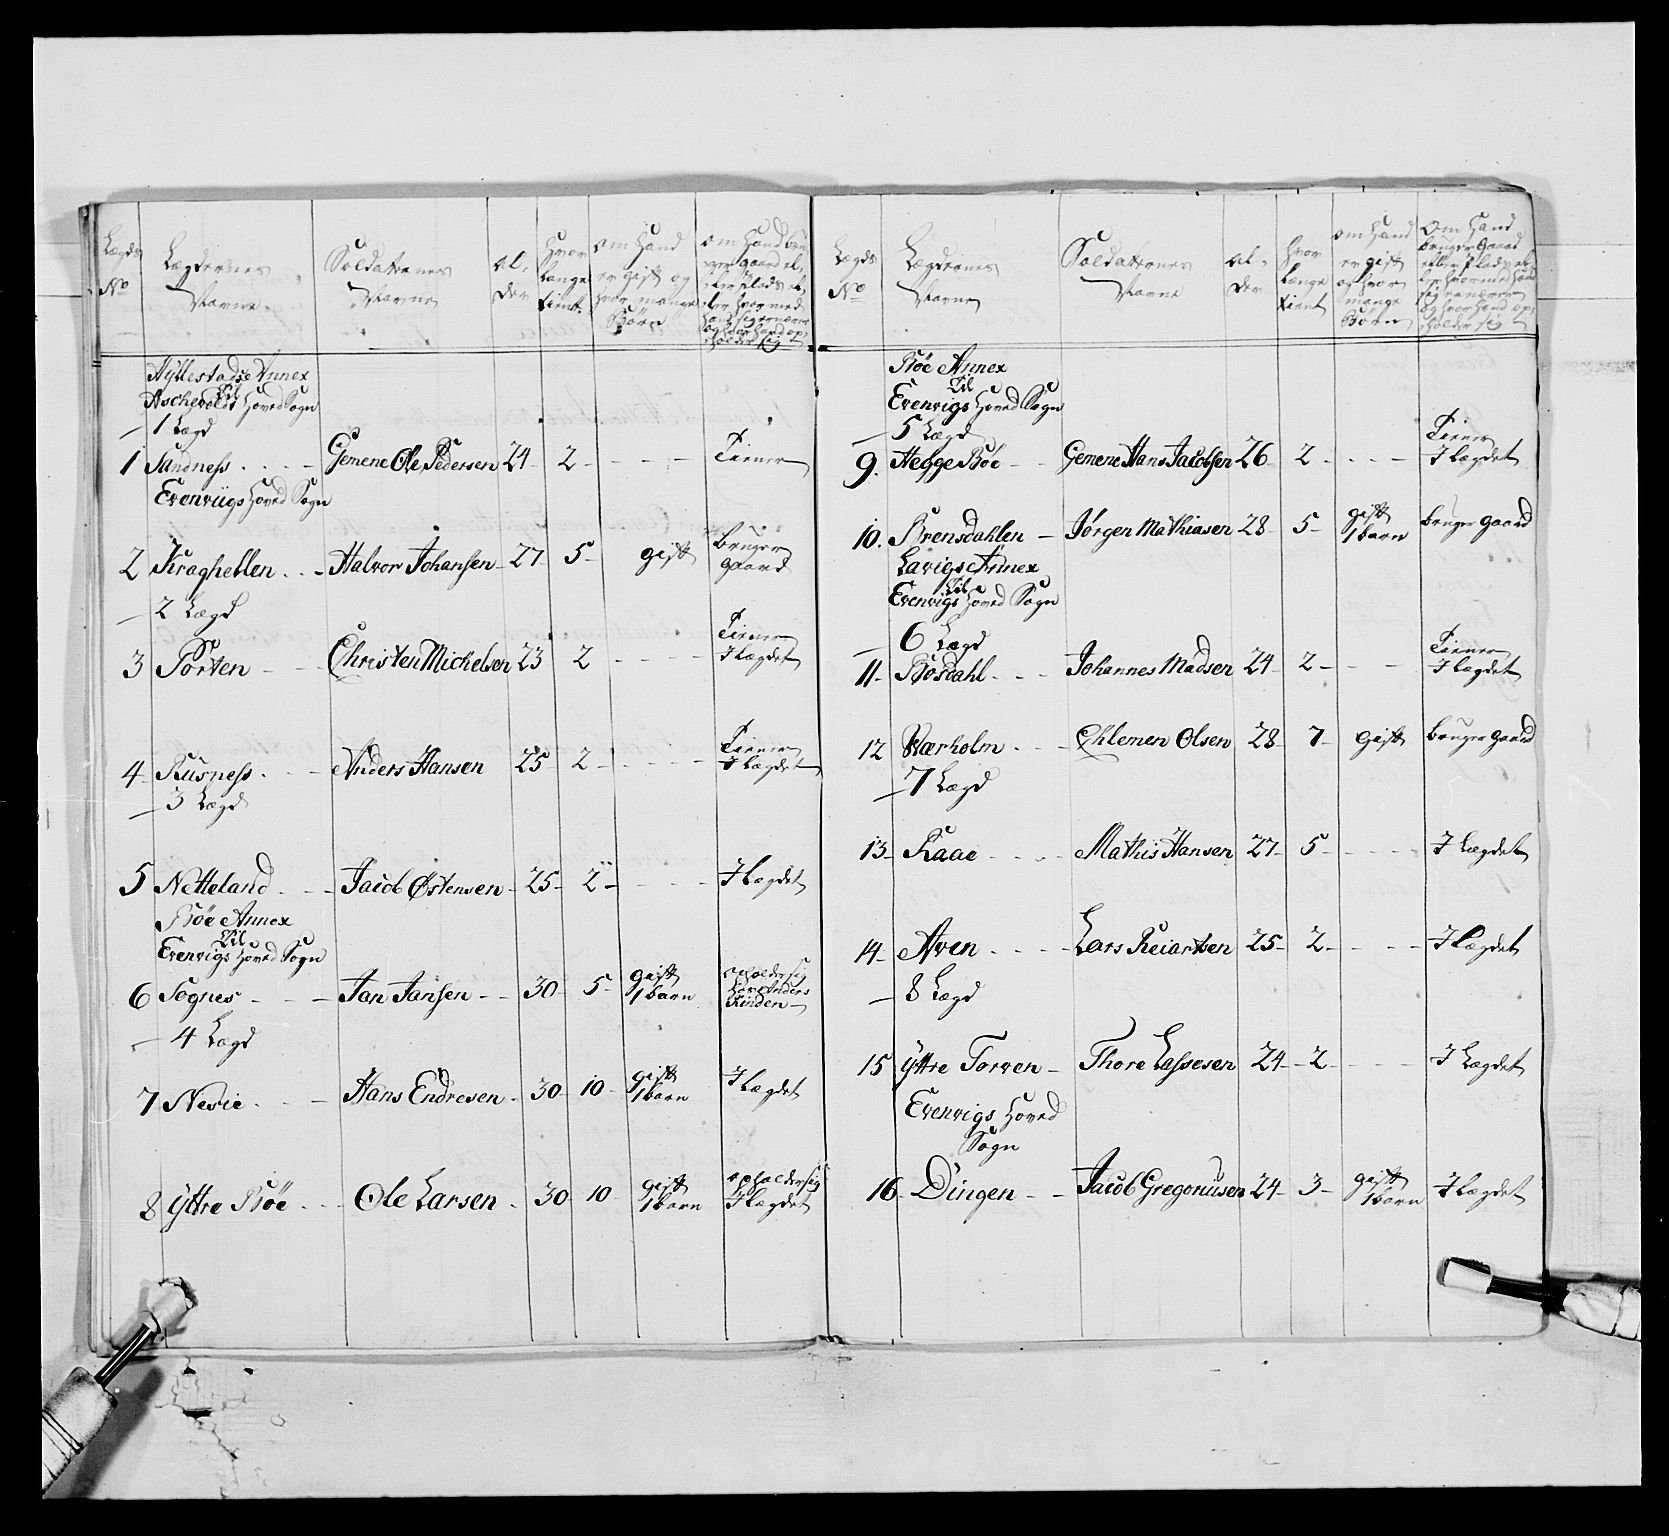 Lægds No
Lægdernes Navne
Soldaternes Navne
Al-der
Hvor længe tient
om Hand er gift og hvor mange Börn
om Hand bru-ger gaard el-
Hyllestads Annex
Til
Aschevolds Hoved Sogn
1 Lægd
1 Sandness - Gemene Ole Pedersen 24 - 2 - - - Tiener
Evenviigs Hoved Sogn
2 Kraghellen - Halvor Johansen - 27 - 5 - gift Bruger gaard
2 Lægd
3 Porten - Christen Michelsen 23 2 - - - Tiener I Lægdet
4 Risness - Anders Hansen 25 - 2 - - - Tiener I Lægdet
3 Lægd
5 Netteland - Jacob Østensen - 25 - 2 - - - I Lægdet
Böe Annex
Til
Evenvigs Hoved Sogn
6 Sognes - Jan Jansen - - 30 - 5 - gift 1 barn opholder sig hos Anders
4 Lægd
7 Nesie - Hans Endresen - 30 - 10 - gift 1 barn I Lægdet
8 Yttre Böe - Ole Larsen - 30 - 10 - gift 1 barn opholder sig I Lægdet
Lægds No
Lægdernes Navne
Soldaternes Navne
Al-der
Hvor længe tient
om Hand er gift og hvor mange Börn
Om Hand bruger gaard
Böe Annex
Til
Evenvigs Hoved Sogn
5 Lægd
9. Hegge Böe - Gemene Hans Jacobsen 26 - 2 - - - Tiener I Lægdet
10. Brensdahlen - Jørgen Mathiasen 28 - 5 - gift 1 barn bruger gaard
Lavigs Annex
Til
Evenvigs Hoved Sogn
6 Lægd
11 - Bosdahl - Johannes Madsen 24 - 2 - - - Tiener I Lægdet
12 Værholm - Chlemen Olsen 28 - 7 - gift bruger gaard
7 Lægd
13 - Raae - Mathis Hansen 27 - 5 - - - I Lægdet
14 - Aven - Lars Reiartsen 25 - 2 - - - I Lægdet
8 Lægd
15 Yttre Torven - Thore Lassesen 24 - 2 - - - I Lægdet
Evenvigs Hoved
Sogn
16 - Dingen - - Jacob Gregoriusen 24 - 3 - gift 1 barn I Lægdet